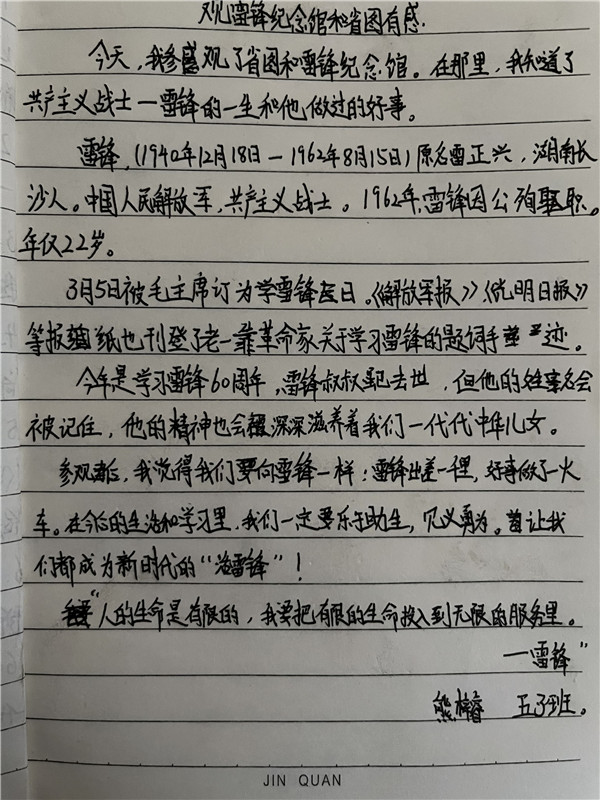 观雷锋纪念馆和省图有感.
今天,我参观了省图和雷锋纪念馆。在那里,我知道了
共产主义战士一雷锋的一生和他做过的好事。
雷锋,(1940年12月18日—1962年8月15日)原名雷正兴,湖南长
沙人。中国人民解放军,共产主义战士。1962年,雷锋因公殉职。
年仅22岁。
3月5日被毛主席订为学雷锋日。《解放军报》《光明日报》
等报纸也刊登了老一辈革命家关于学习雷锋的题词手迹。
今年是学习雷锋60周年,雷锋叔叔虽已去世,但他的姓名会
被记住,他的精神也会深深滋养着我们一代代中华儿女。
参观后,我觉得我们要向雷锋一样:雷锋出差一里,好事做了一火
车。在今后的生活和学习里,我们一定要乐于助生,见义勇为。让我
们都成为新时代的“活雷锋”!
“人的生命是有限的,我要把有限的生命投入到无限的服务里。
一雷锋”
熊梓睿 五3班。
JIN QUAN